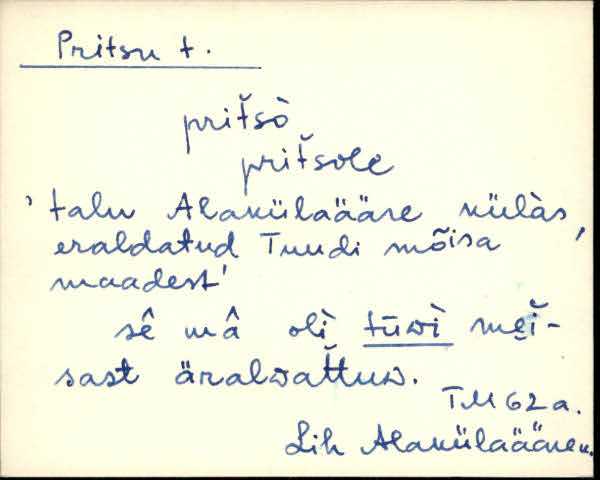 Pritsu t.
prit̆sò
prit̆sole
'talu Alaküläääre külàs,
eraldatud Tuudi mõisa
maadest'
sê mâ olì tūwì meĭ̯-
sast äralwat̆tuw.
TM 62 a.
Lih Alaküläääre k.